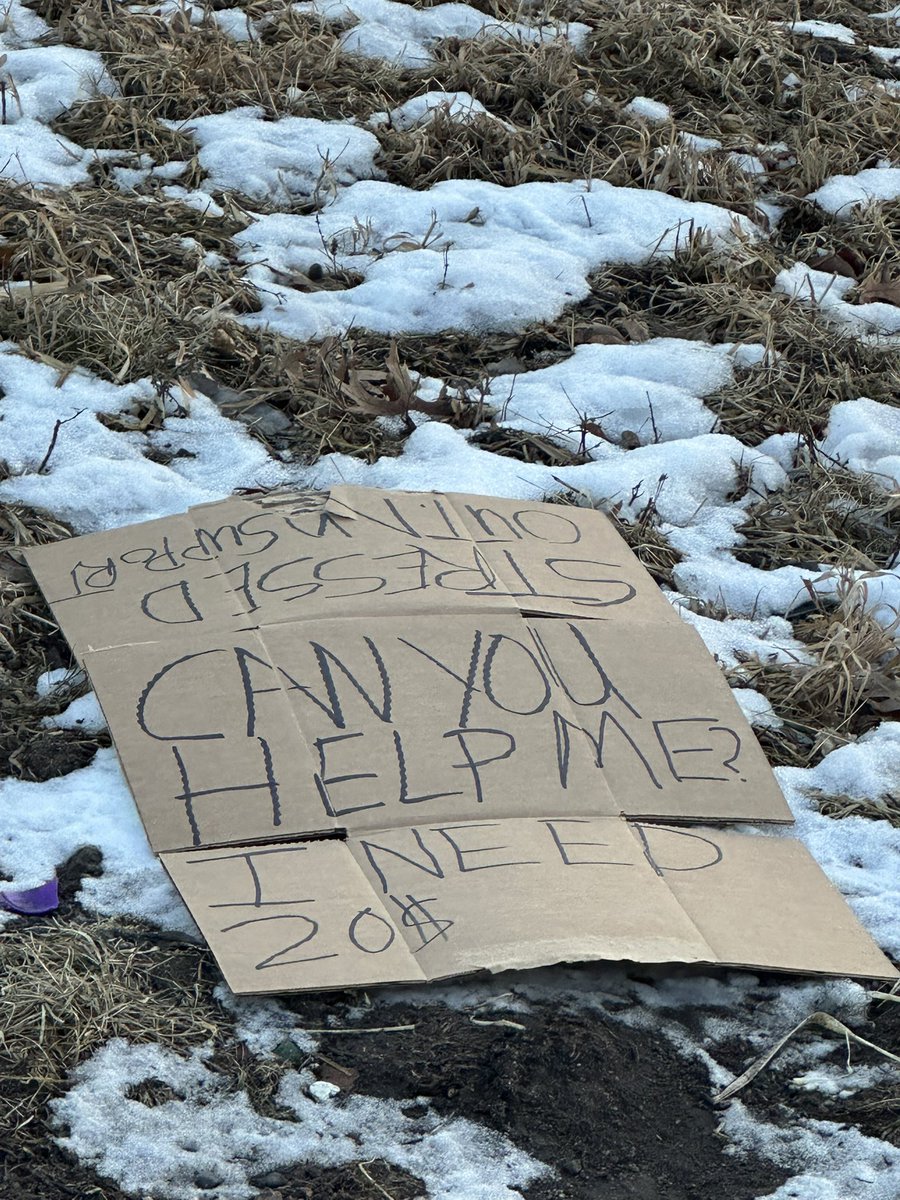 STRESSED
OUT IN A SUPPORT
CAN YOU
HELP ME?
I NEED
20$